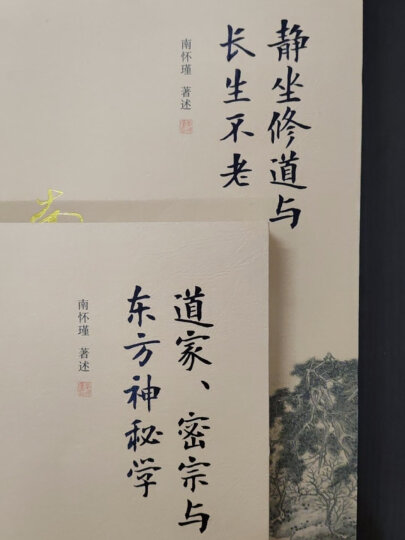 静坐修道与
长生不老
南怀瑾 著述
道家、密宗与
东方神秘学
南怀瑾 著述